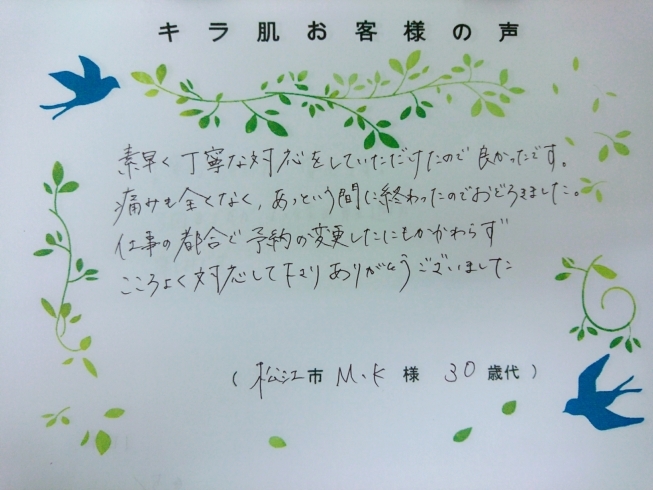 キラ肌お客様の声
素早く丁寧な対応をしていただけたので良かったです。
痛みも全くなく、あっという間に終わったのでおどろきました。
仕事の都合で予約の変更したにもかかわらず
こころよく対応して下さりありがとうございました
(松江市 M.K 様 30歳代)